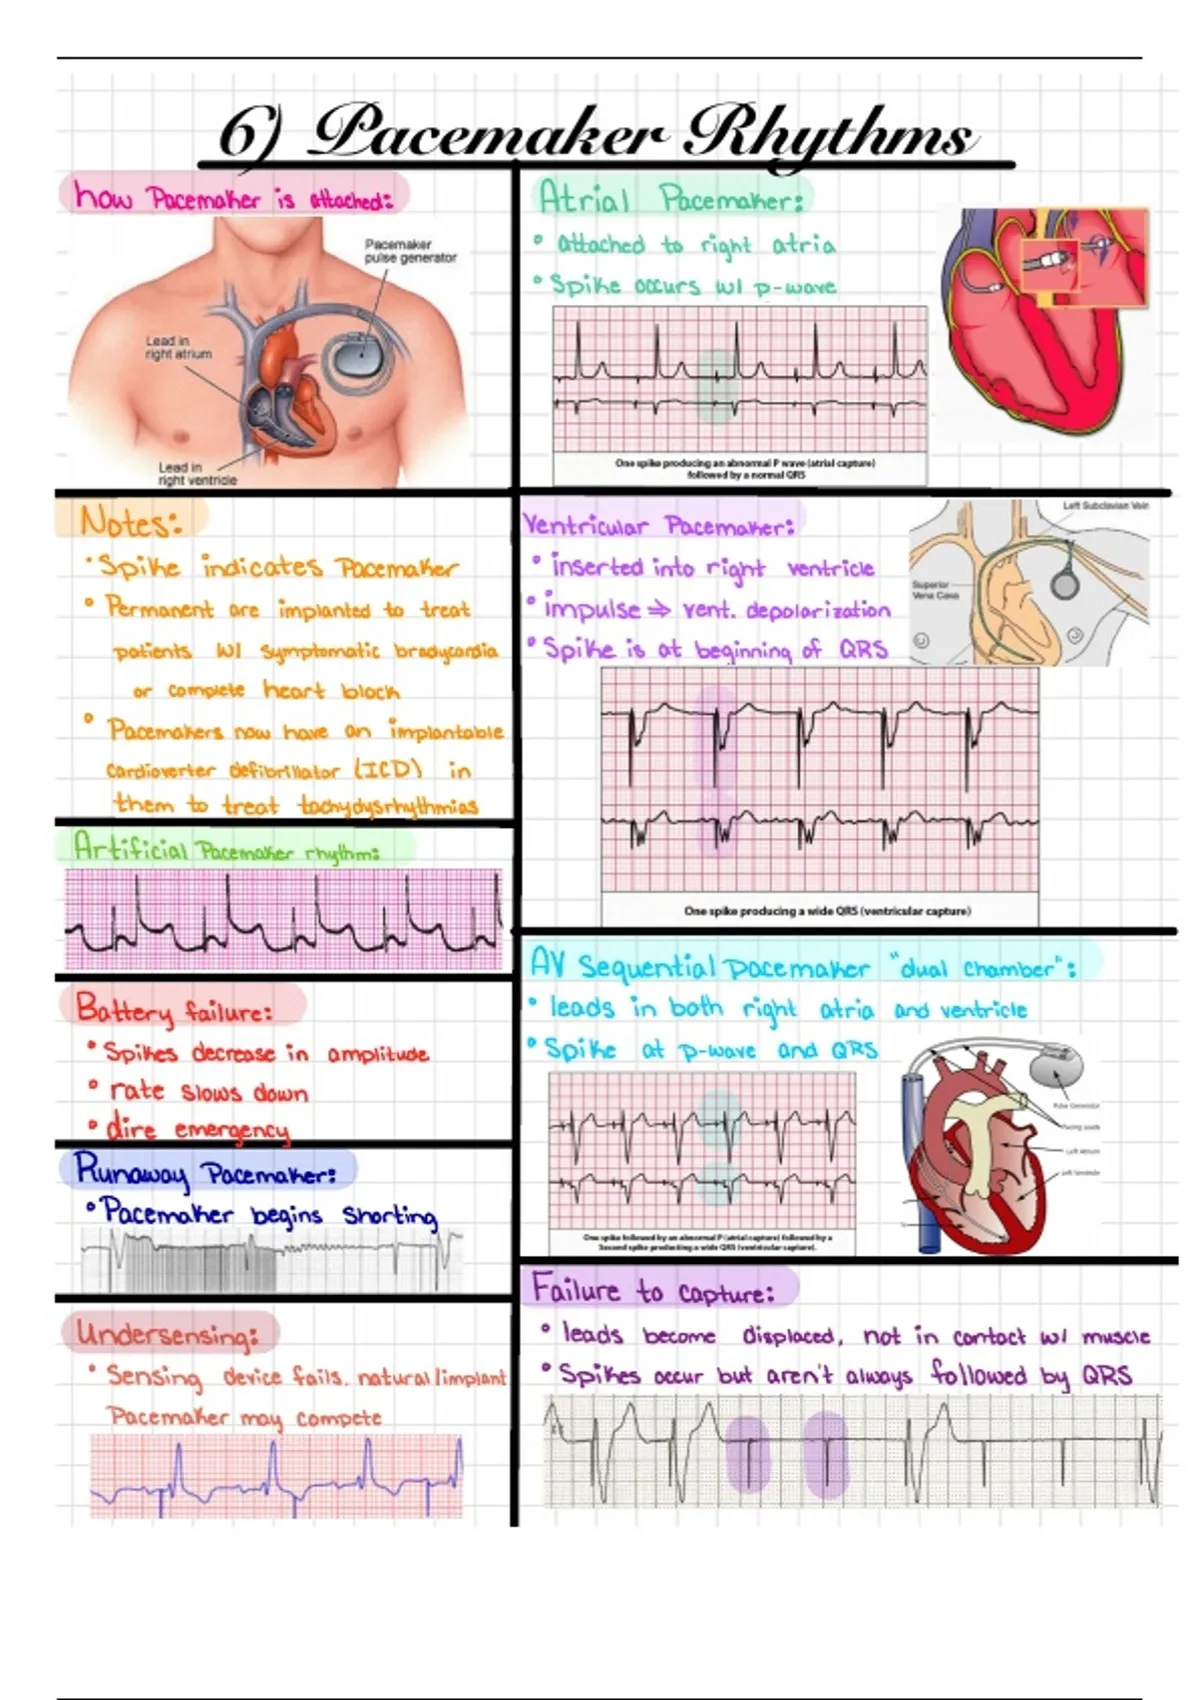 6) Pacemaker Rhythms
how Pacemaker is attached:
Pacemaker
pulse generator
Lead in
right atrium
Lead in
right ventricle
Notes:
• Spike indicates Pacemaker
• Permanent are implanted to treat
patients w/ symptomatic bradycardia
or complete heart block
• Pacemakers now have an implantable
cardioverter defibrillator (ICD) in
them to treat tachydysrhythmias
Artificial Pacemaker rhythm:
Battery failure:
• Spikes decrease in amplitude
• rate slows down
• dire emergency
Runaway Pacemaker:
• Pacemaker begins shorting
Undersensing:
• Sensing device fails. natural/implant
Pacemaker may compete
Atrial Pacemaker:
• attached to right atria
• Spike occurs w/ p-wave
One spike producing an abnormal P wave (atrial capture)
followed by a normal QRS
Ventricular Pacemaker:
• inserted into right ventricle
• impulse ⇒ vent. depolarization
• Spike is at beginning of QRS
Left Subclavian Vein
Superior
Vena Cava
One spike producing a wide QRS (ventricular capture)
AV Sequential pacemaker "dual chamber":
• leads in both right atria and ventricle
• Spike at p-wave and QRS
Pulse Generator
Pacing Leads
Left Atrium
Left Ventricle
One spike followed by an abnormal P (atrial capture) followed by a
Second spike producting a wide QRS (ventricular capture).
Failure to capture:
• leads become displaced, not in contact w/ muscle
• Spikes occur but aren't always followed by QRS